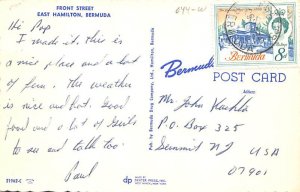 FRONT STREET
EAST HAMILTON, BERMUDA
644-W
Hi Pop
I made it. This is
a nice place and a lot
of fun. The weather
is nice and hot. Good
food and a lot of Girls
to see and talk too.
Paul
Pub. by Bermuda Drug Company, Ltd., Hamilton, Bermuda
Bermuda
POST CARD
Address
Mr. John
P.O. Box 325
Summit NJ
USA
07901
BERMUDA
8D
dp
DEXTER PRESS, INC.
WEST NYACK, NEW YORK